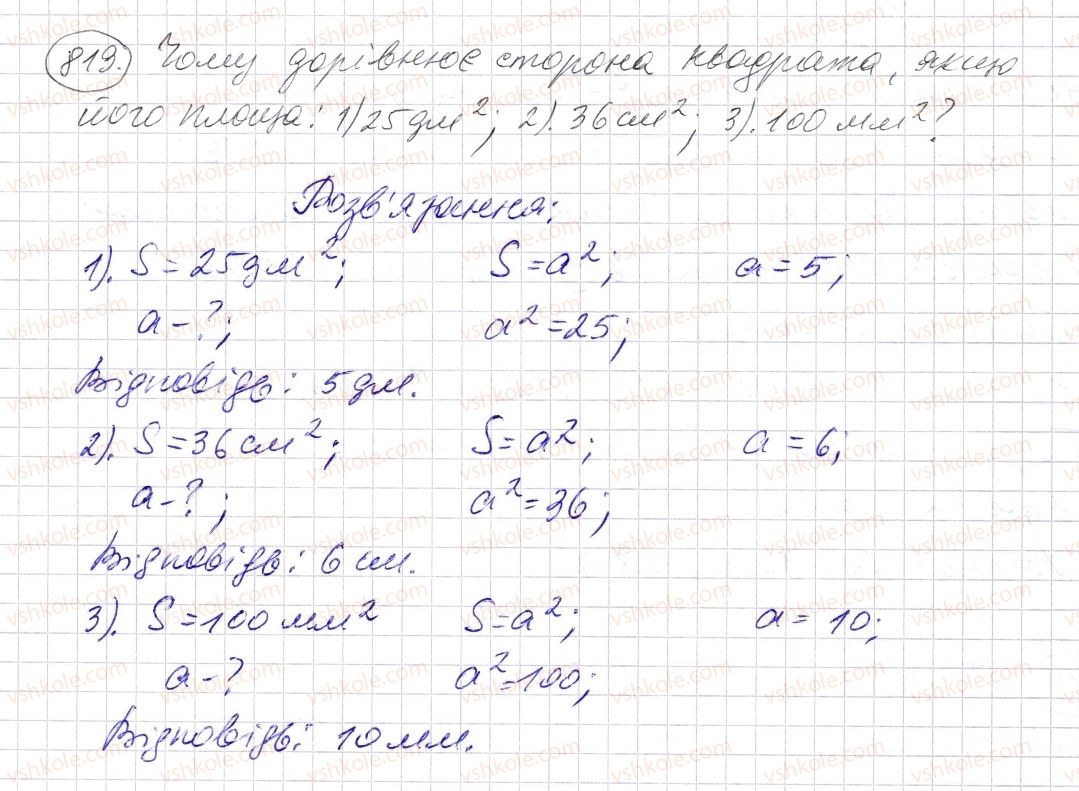 819. Чому дорівнює сторона квадрата, якщо
його площа: 1) 25 дм²; 2). 36 см²; 3). 100 мм²?
Розв'язання:
1). S = 25 дм²; S = a²; a = 5;
a - ?; a² = 25;
Відповідь: 5 дм.
2). S = 36 см²; S = a²; a = 6;
a - ?; a² = 36;
Відповідь: 6 см.
3). S = 100 мм² S = a²; a = 10;
a - ? a² = 100;
Відповідь: 10 мм.
vshkole.com